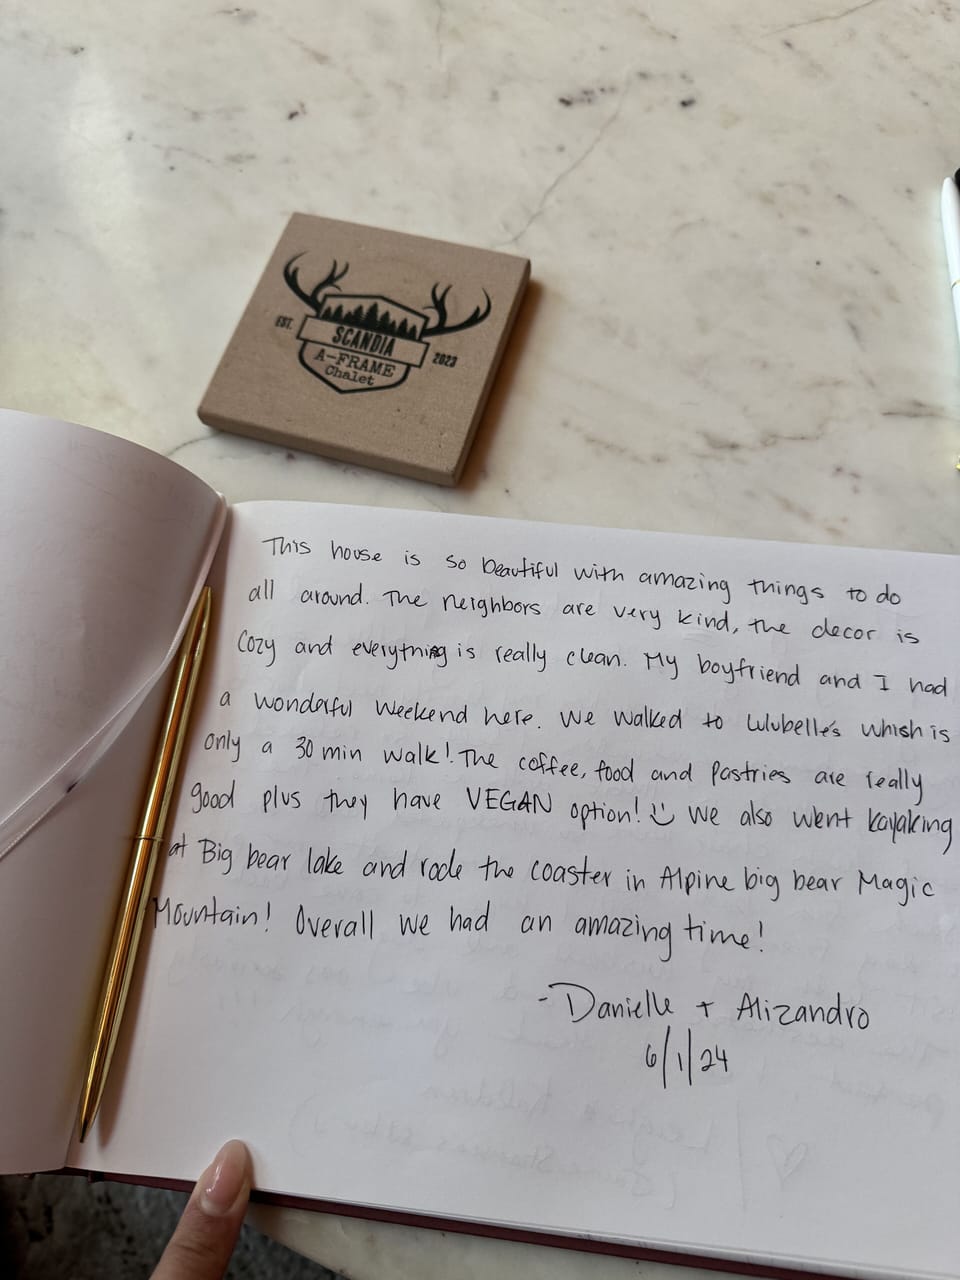 EST.
SCANDIA
2023
A-FRAME
Chalet
This house is so beautiful with amazing things to do
all around. The neighbors are very kind, the decor is
Cozy and everything is really clean. My boyfriend and I had
a wonderful weekend here. We walked to Lulubelle's which is
only a 30 min walk! The coffee, food and pastries are really
good plus they have VEGAN option! We also went kayaking
at Big bear lake and rode the coaster in Alpine big bear Magic
Mountain! Overall we had an amazing time!
- Danielle + Alizandro
6/1/24